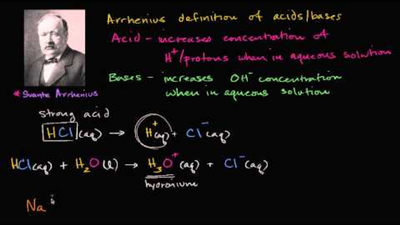 Arrhenius definition of acids/bases
Acid - increases concentration of
H⁺/protons when in aqueous solution
Bases - increases OH⁻ concentration
when in aqueous solution
* Svante Arrhenius
strong acid
HCl(aq) → H⁺(aq) + Cl⁻(aq)
HCl(aq) + H₂O(l) → H₃O⁺(aq) + Cl⁻(aq)
hydronium
Na